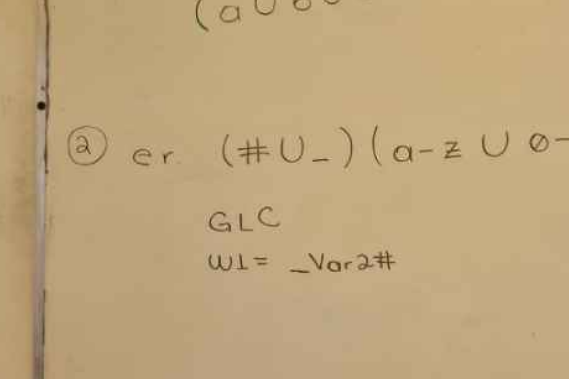 (a U
② er. (# U _ ) ( a-z U 0-
GLC
W1 = _Var2#